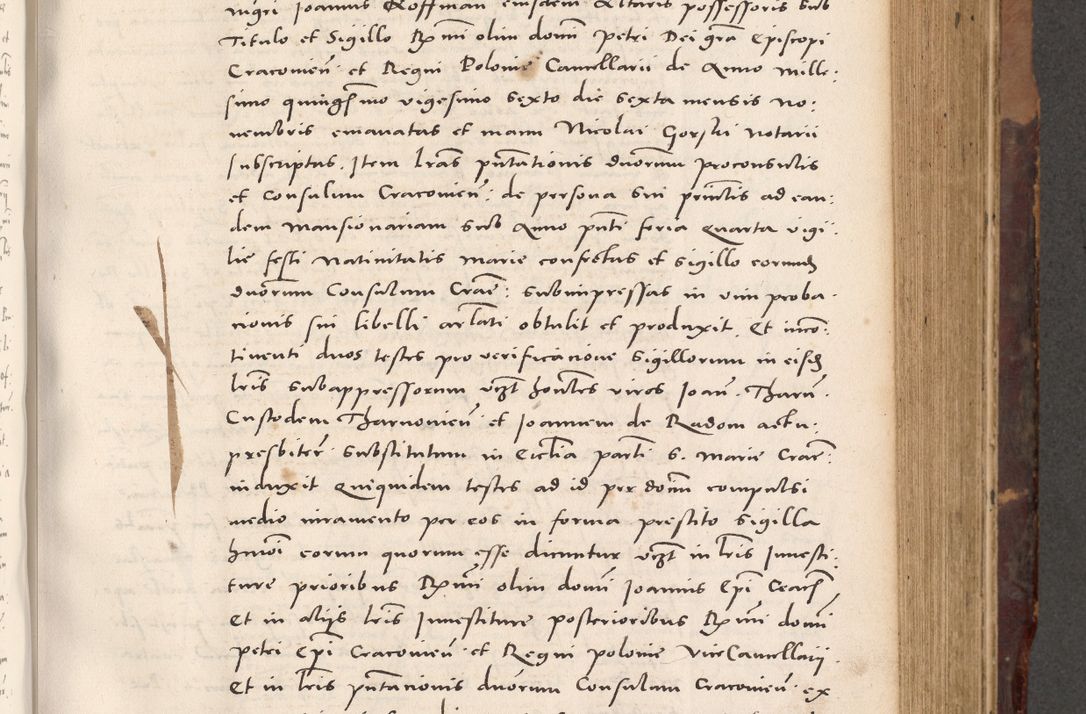 mgri Joannis Hoffman eiusdem Altaris possessoris sub
Titulo et Sigillo Rxmi olim domi petri Dei gra Episcopi
Cracovien et Regni Polonie Cancellarii de Anno Mille:
simo quingsimo vigesimo sexto die sexta mensis No:
vembris emanatas et manu Nicolai Gorski Notarii
subscriptas. Item lras pntationis duorum proconsulis
et Consulum Cracovien: de persona sui principalis ad ean:
dem Mansionariam sub Anno pnti feria Quarta vigi:
lie festi Nativitatis Marie confectas et sigillo eorunde
duorum Consulum Crac: subimpressas in vim proba:
cionis sui libelli arlati obtulit et produxit. Et inco:
tinenti duos testes pro verificacione sigillorum in eisde
lris subappressorum vizt hontes viros Joan. Tharn.
Custodem Tharnovien: et Joannem de Radom actu:
presbiter substitutum in Ecclia parti S. Marie Crac:
induxit Quiquidem testes ad id per domi compulsi
medio iuramento per eos in forma prestito sigilla
hmoi eorum quorum esse dicuntur vizt in lris Investi:
ture prioribus Rxmi olim domi Joannis Epi
Et in aliis lris Investiture posterioribus Rxmi domi
petri Epi Cracovien: et Regni polonie ViceCancellarii
Et in lris pntacionis duorum Consulum Cracovien: ex